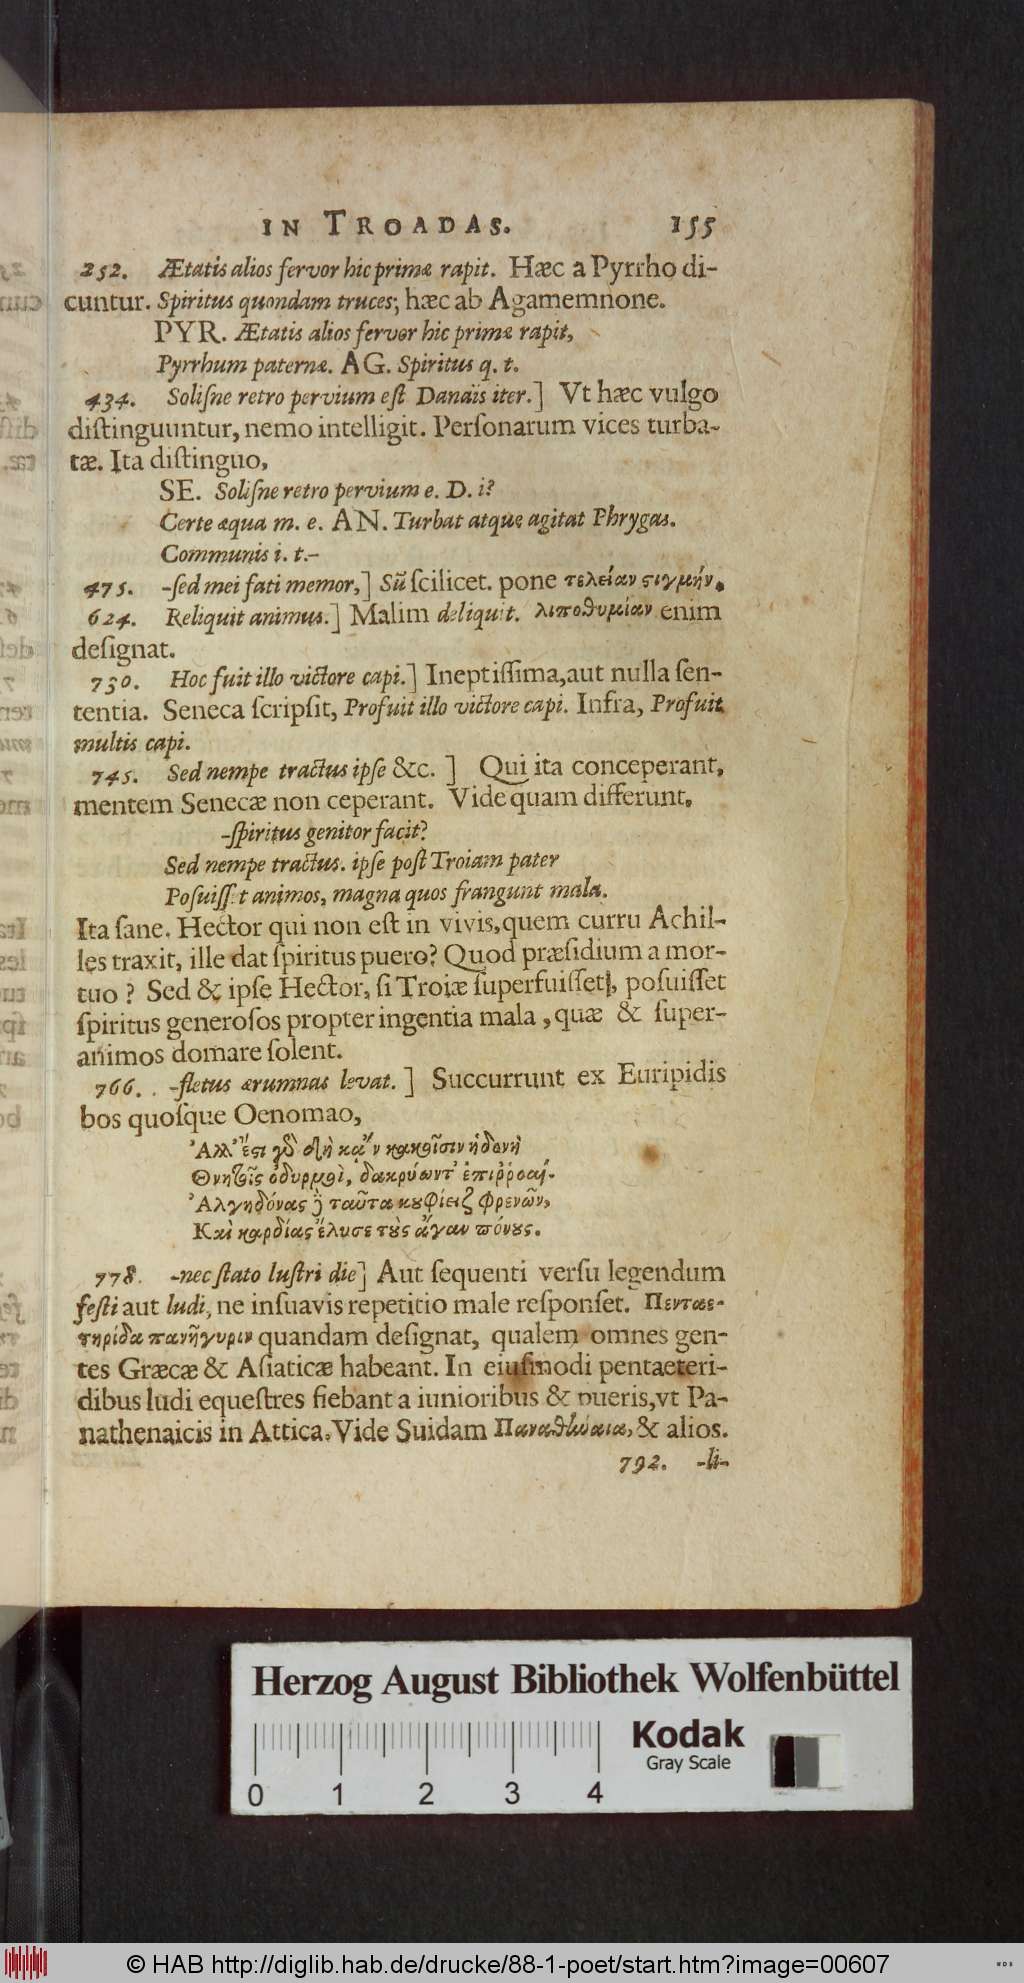 IN TROADAS. 155
252. Ætatis alios fervor hic primæ rapit. Hæc a Pyrrho di-
cuntur. Spiritus quondam truces; hæc ab Agamemnone.
PYR. Ætatis alios fervor hic primæ rapit,
Pyrrhum paternæ. AG. Spiritus q. t.
434. Soliſne retro pervium eſt Danais iter.] Vt hæc vulgo
diſtinguuntur, nemo intelligit. Perſonarum vices turba-
tæ. Ita diſtinguo,
SE. Soliſne retro pervium e. D. i?
Certe æqua m. e. AN. Turbat atque agitat Phrygas.
Communis i. t.–
475. -ſed mei fati memor,] Sũ ſcilicet. pone τελείαν ϛιγμήν.
624. Reliquit animus.] Malim deliquit. λιποθυμίαν enim
deſignat.
730. Hoc fuit illo victore capi.] Ineptiſſima, aut nulla ſen-
tentia. Seneca ſcripſit, Profuit illo victore capi. Infra, Profuit
multis capi.
745. Sed nempe tractus ipſe &c. ] Qui ita conceperant,
mentem Senecæ non ceperant. Vide quam differunt,
-ſpiritus genitor facit?
Sed nempe tractus. ipſe poſt Troiam pater
Poſuiſſet animos, magna quos frangunt mala.
Ita ſane. Hector qui non eſt in vivis, quem curru Achil-
les traxit, ille dat ſpiritus puero? Quod præſidium a mor-
tuo ? Sed & ipſe Hector, ſi Troiæ ſuperfuiſſet, poſuiſſet
ſpiritus generoſos propter ingentia mala, quæ & ſuper-
animos domare ſolent.
766. -fletus ærumnas levat. ] Succurrunt ex Euripidis
bos quoſque Oenomao,
Ἀλλ' ἔϛι γὸ δὴ κᾀν κακοῖσιν ἡδονὴ
Θνητοῖς ὀδυρμοὶ, δακρύωντ' ἐπιῤῥοαί.
Ἀλγηδόνας ȷ̀ ταῦτα κουφίζει φρενῶν,
Καὶ καρδίας ἔλυσε τοὺς ἄγαν πόνους.
778. -nec ſtato luſtri die] Aut ſequenti verſu legendum
feſti aut ludi, ne inſuavis repetitio male reſponſet. Πενταε-
τηρίδα πανήγυριν quandam deſignat, qualem omnes gen-
tes Græcæ & Aſiaticæ habeant. In eiuſmodi pentaeteri-
dibus ludi equeſtres fiebant a iunioribus & pueris, vt Pa-
nathenaicis in Attica. Vide Suidam Παναθήναια, & alios.
792. -li-
Herzog August Bibliothek Wolfenbüttel
Kodak
Gray Scale
0 1 2 3 4
© HAB http://diglib.hab.de/drucke/88-1-poet/start.htm?image=00607